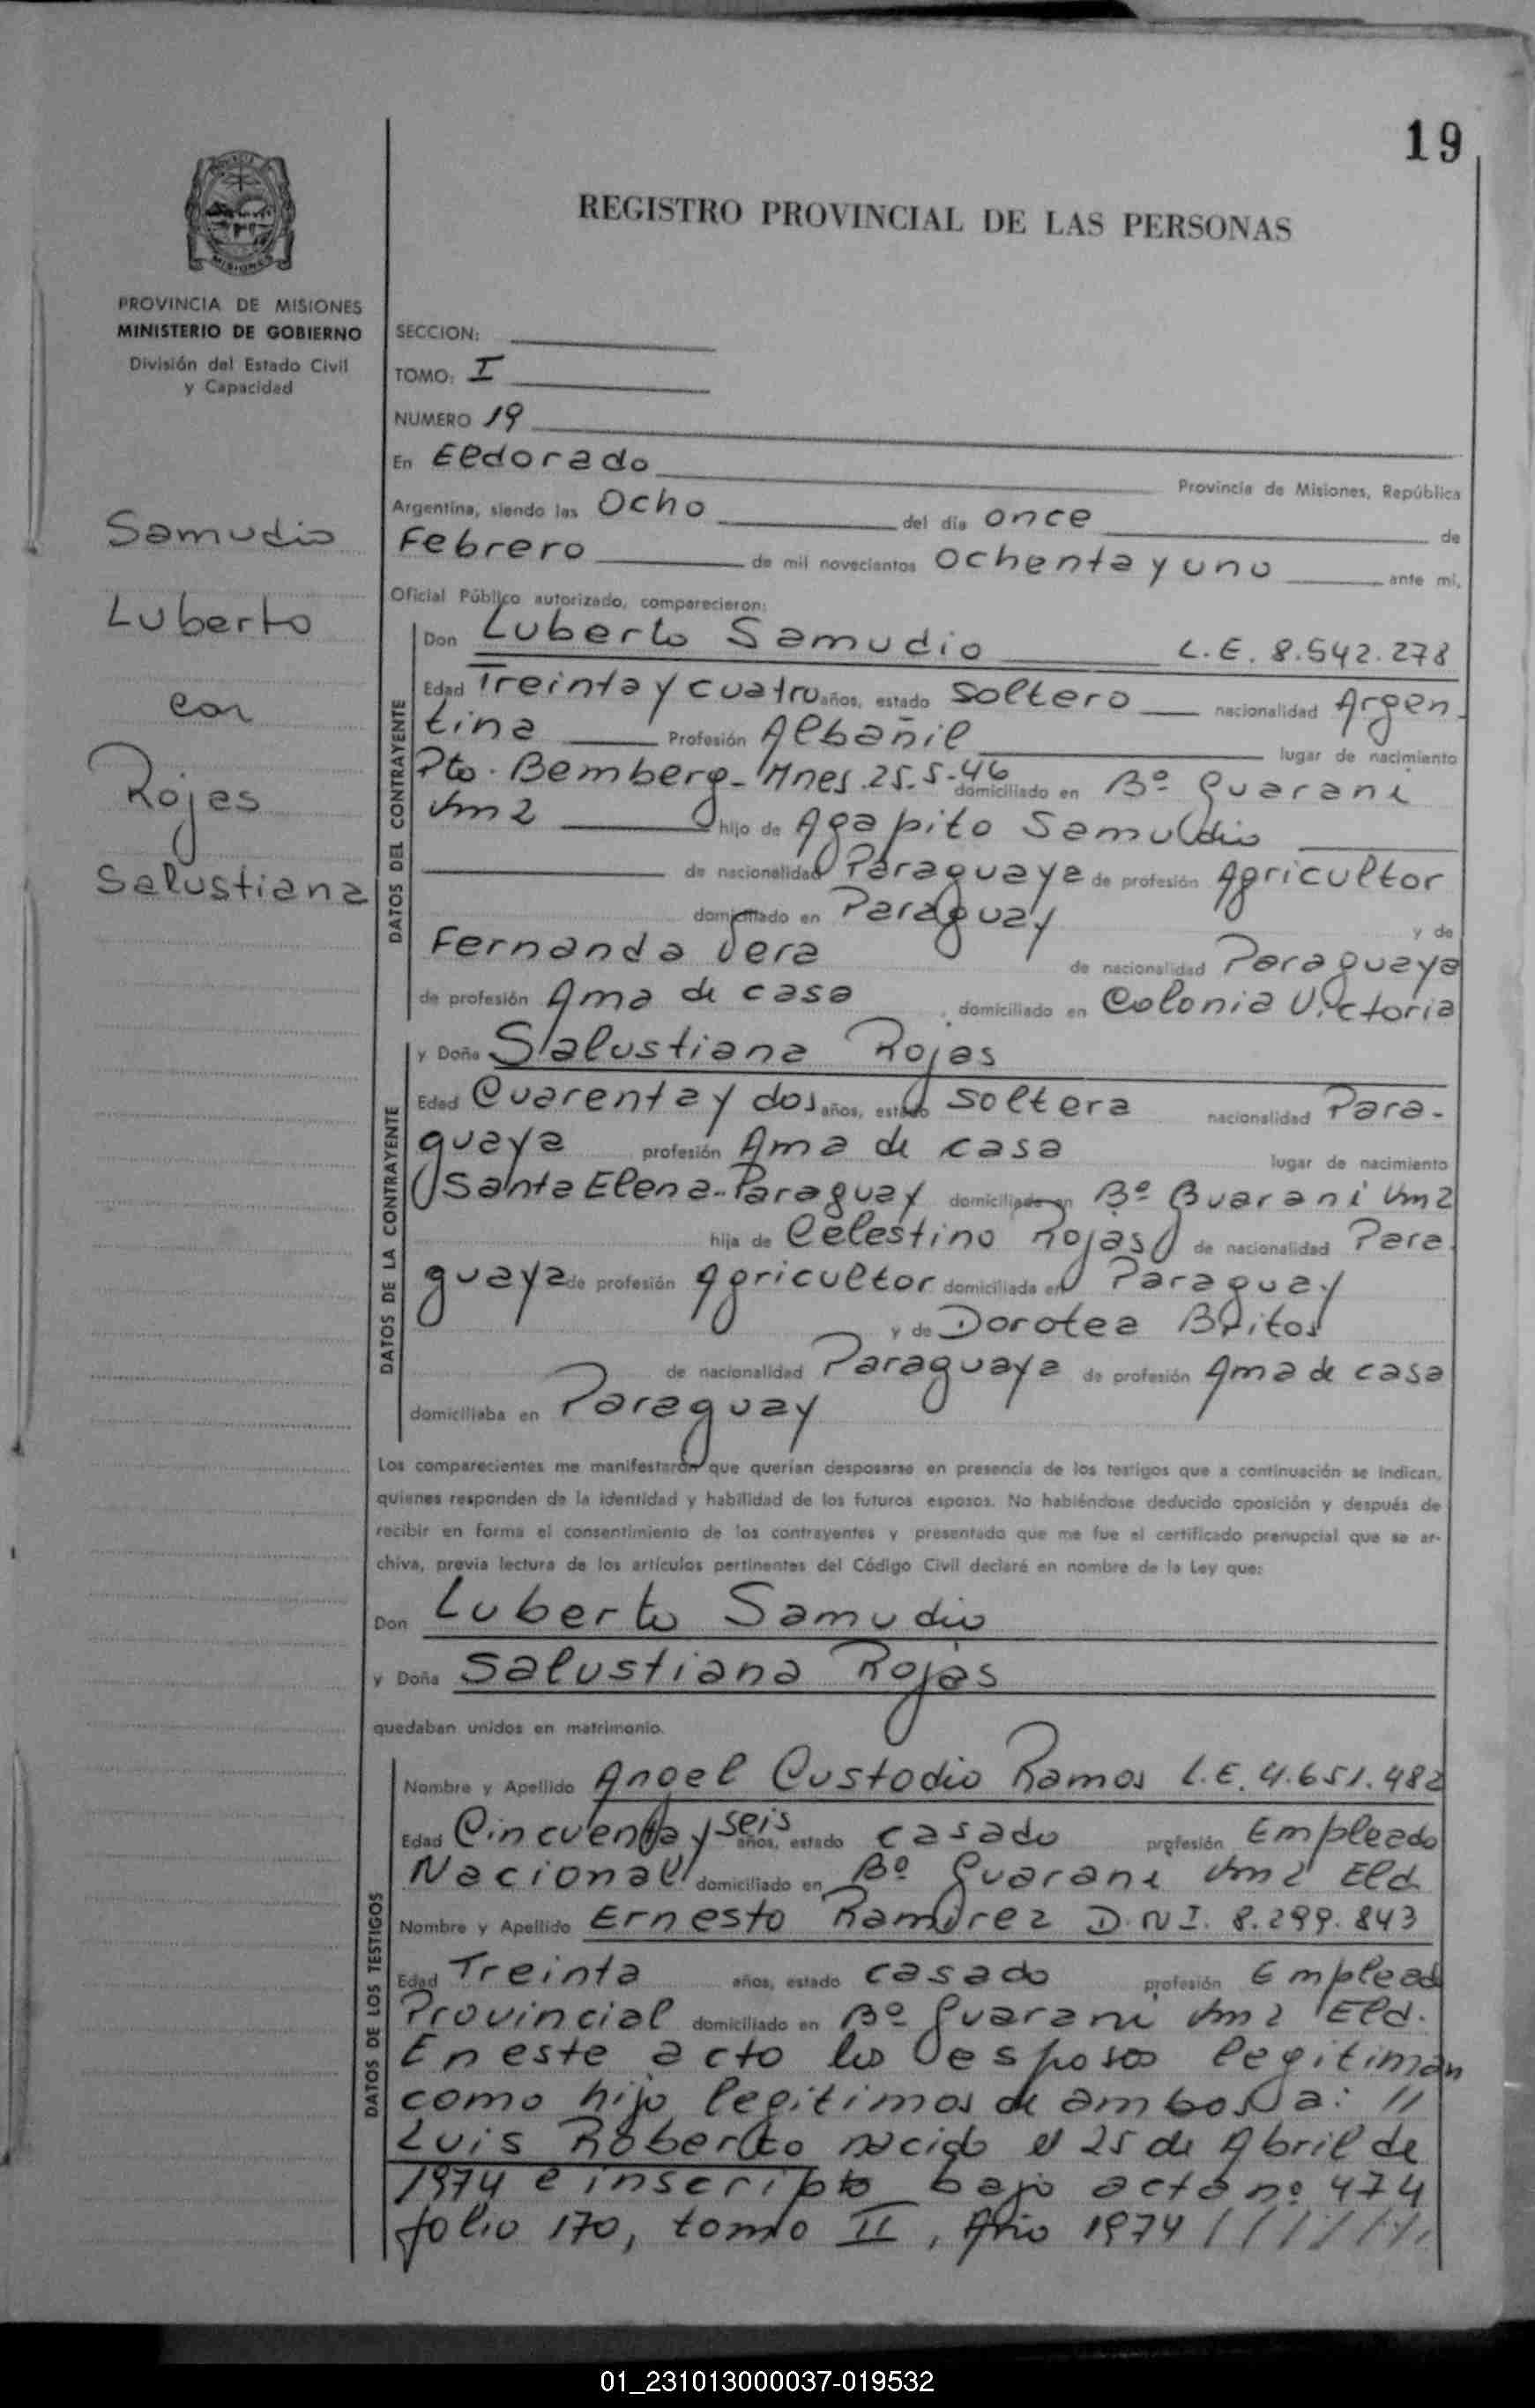 19
REGISTRO PROVINCIAL DE LAS PERSONAS
MISIONES
PROVINCIA DE MISIONES
MINISTERIO DE GOBIERNO
División del Estado Civil
y Capacidad
Samudio
Luberto
con
Rojas
Salustiana
SECCION:
TOMO: I
NUMERO 19
En Eldorado Provincia de Misiones, República
Argentina, siendo las Ocho del día once de
Febrero de mil novecientos ochenta y uno ante mí,
Oficial Público autorizado, comparecieron:
DATOS DEL CONTRAYENTE
Don Luberto Samudio L.E. 8.542.278
Edad Treinta y cuatro años, estado soltero nacionalidad Argen-
tina Profesión Albañil lugar de nacimiento
Pto. Bemberg-Mnes. 25-5-46 domiciliado en Bº Guarani
Km 2 hijo de Agapito Samudio
de nacionalidad Paraguaya de profesión Agricultor
domiciliado en Paraguay y de
Fernanda Vera de nacionalidad Paraguaya
de profesión Ama de casa domiciliado en Colonia Victoria
DATOS DE LA CONTRAYENTE
y Doña Salustiana Rojas
Edad Cuarenta y dos años, estado soltera nacionalidad Para-
guaya profesión Ama de casa lugar de nacimiento
Santa Elena-Paraguay domiciliada en Bº Guarani Km 2
hija de Celestino Rojas de nacionalidad Para-
guaya de profesión Agricultor domiciliada en Paraguay
y de Dorotea Britos
de nacionalidad Paraguaya de profesión Ama de casa
domiciliaba en Paraguay
Los comparecientes me manifestaron que querían desposarse en presencia de los testigos que a continuación se indican,
quienes responden de la identidad y habilidad de los futuros esposos. No habiéndose deducido oposición y después de
recibir en forma el consentimiento de los contrayentes y presentado que me fue el certificado prenupcial que se ar-
chiva, previa lectura de los artículos pertinentes del Código Civil declaré en nombre de la Ley que:
Don Luberto Samudio
y Doña Salustiana Rojas
quedaban unidos en matrimonio.
DATOS DE LOS TESTIGOS
Nombre y Apellido Angel Custodio Ramos L.E. 4.651.482
Edad Cincuenta y seis años, estado casado profesión Empleado
Nacional domiciliado en Bº Guarani Km 2 Eld.
Nombre y Apellido Ernesto Ramirez D.N.I. 8.299.843
Edad Treinta años, estado casado profesión Empleado
Provincial domiciliado en Bº Guarani Km 2 Eld.
En este acto los esposos legitiman
como hijo legitimos de ambos a: //
Luis Roberto nacido el 25 de Abril de
1974 e inscripto bajo acta nº 474
folio 170, tomo II, Año 1974 ///////
01_231013000037-019532